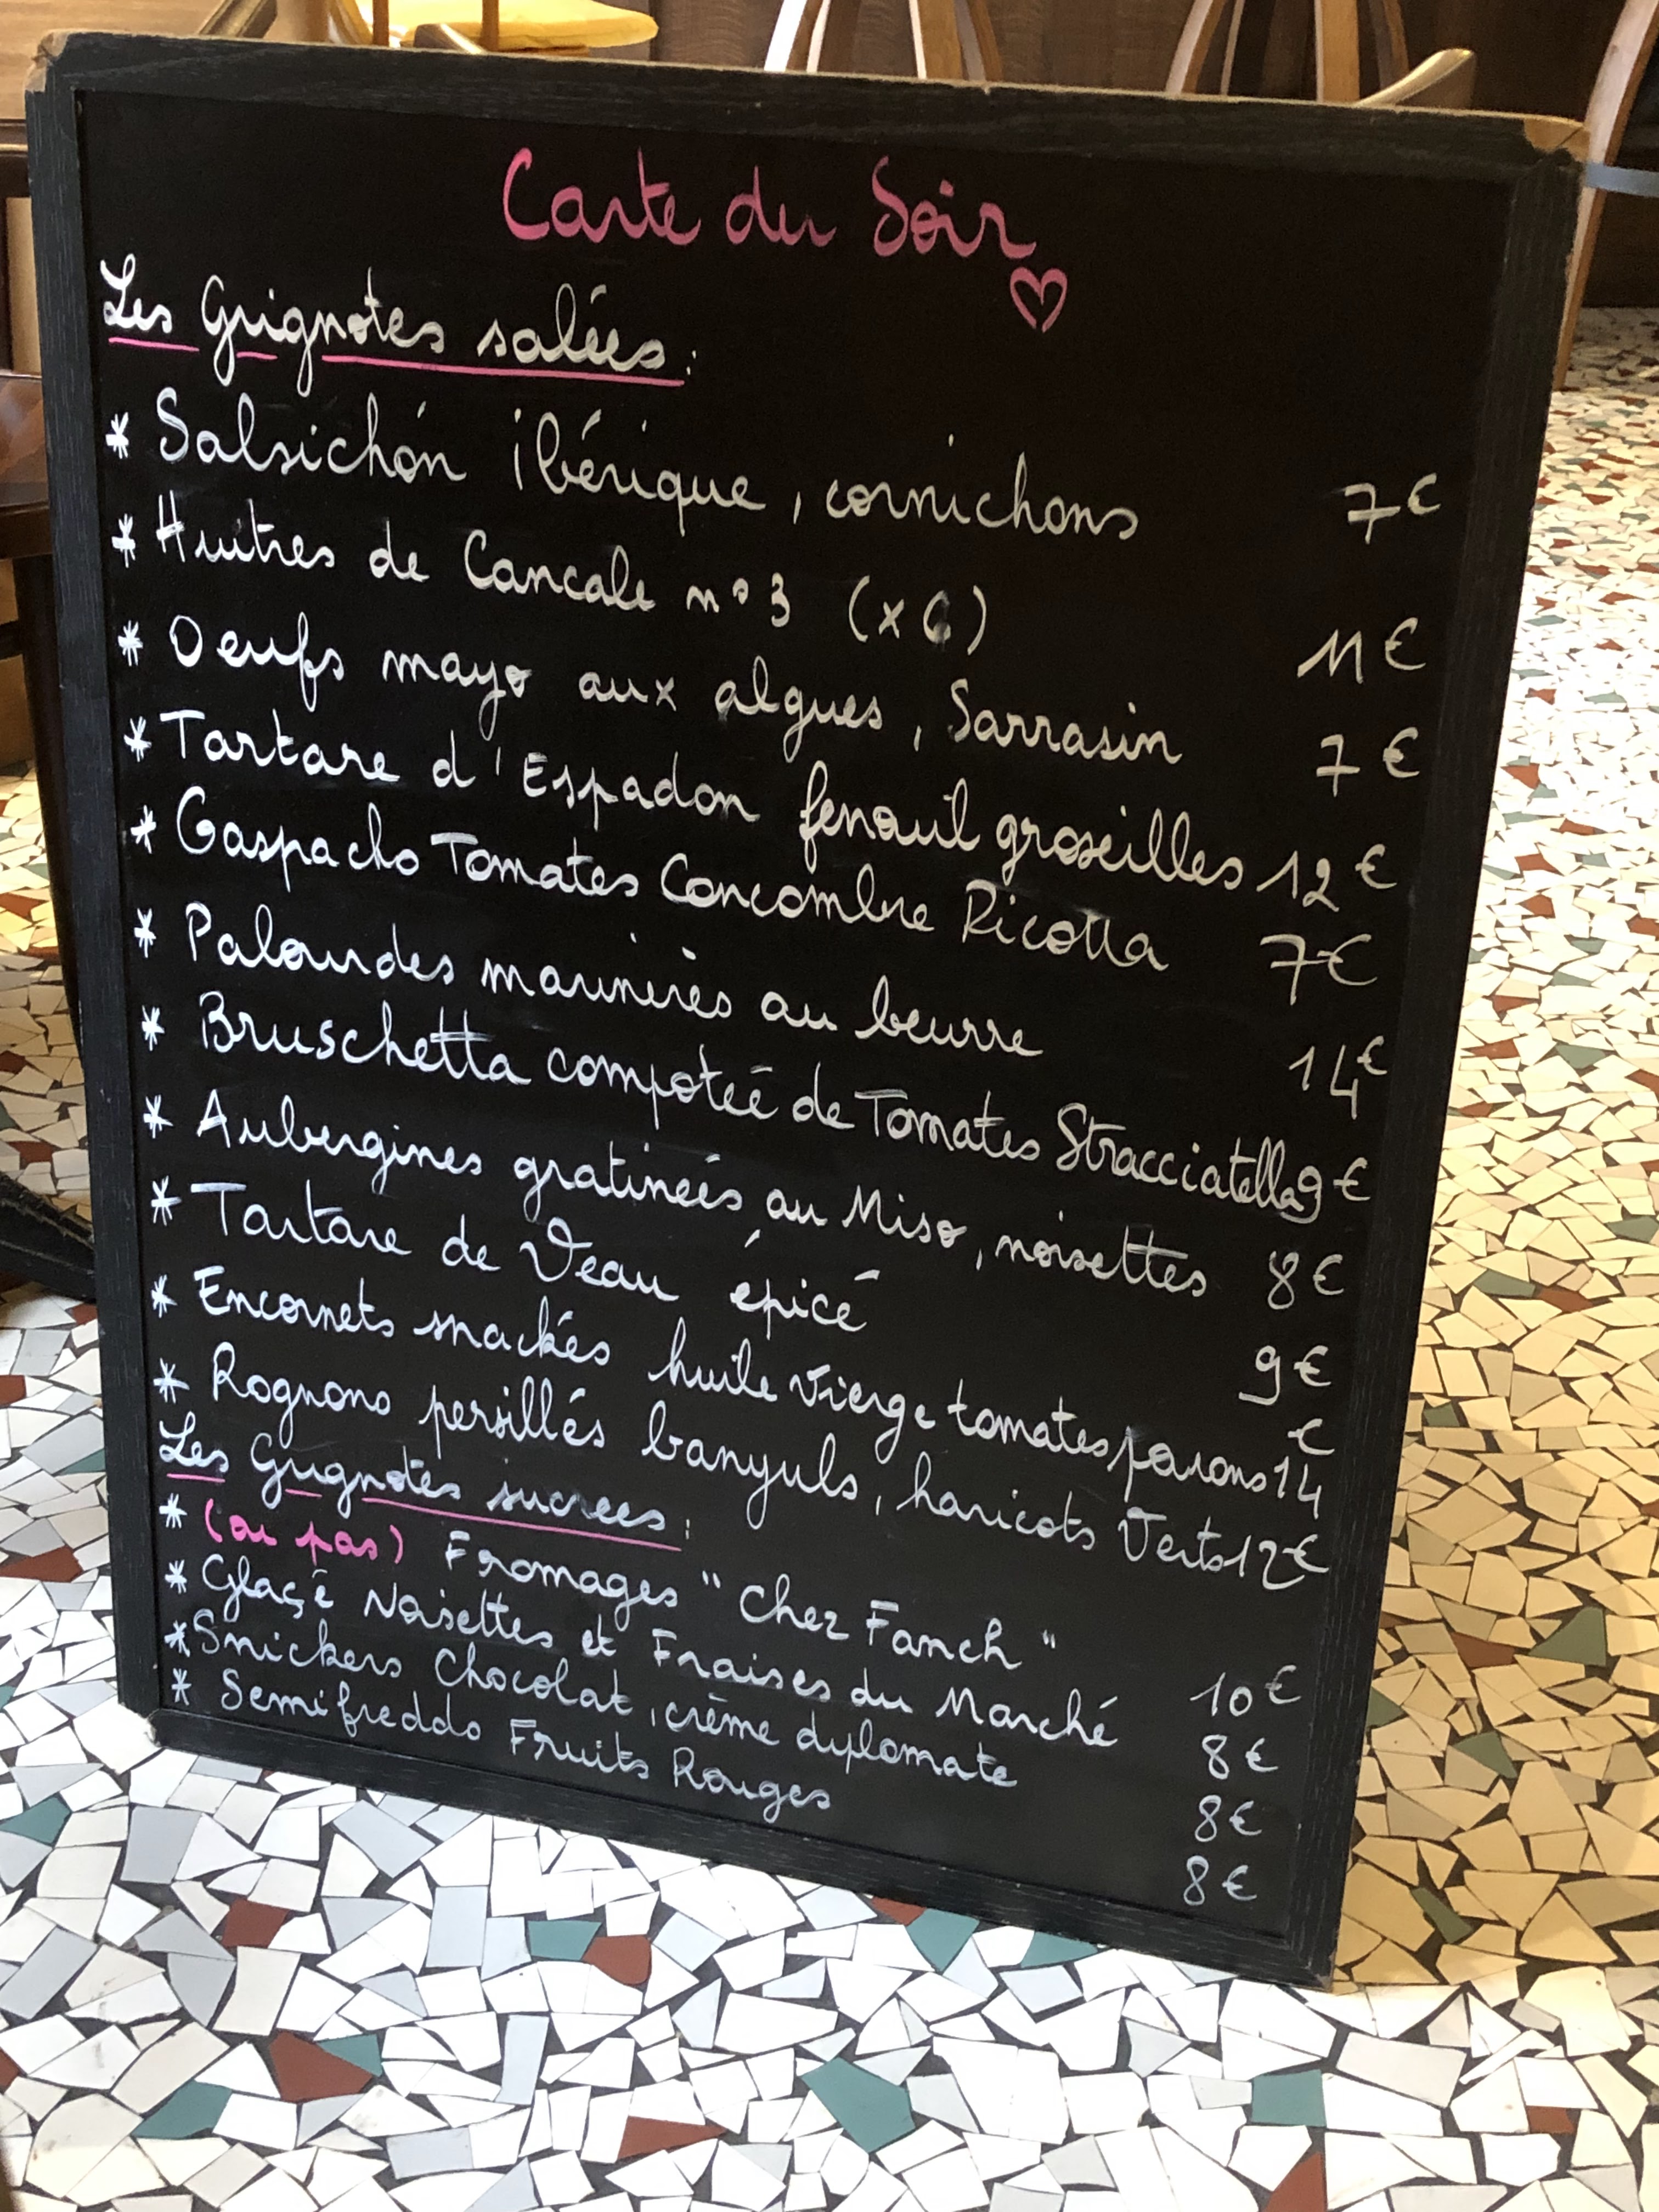 Carte du Soir
Les Grignotes salées :
* Salsichón ibérique, cornichons 7€
* Huitres de Cancale n°3 (x6) 11€
* Oeufs mayo aux algues, Sarrasin 7€
* Tartare d'Espadon fenouil groseilles 12€
* Gaspacho Tomates Concombre Ricotta 7€
* Palourdes marinières au beurre 14€
* Bruschetta compoteé de Tomates Stracciatella 9€
* Aubergines gratineés au Miso, noisettes 8€
* Tartare de Veau épicé 9€
* Encornets snackés huile vierge tomates, poivrons 14€
* Rognons persillés banyuls, haricots Verts 12€
Les Grignotes sucrees :
* (ou pas) Fromages "Chez Fanch" 10€
* Glaçé Noisettes et Fraises du Marché 8€
* Snickers Chocolat, crème dyplomate 8€
* Semifreddo Fruits Rouges 8€